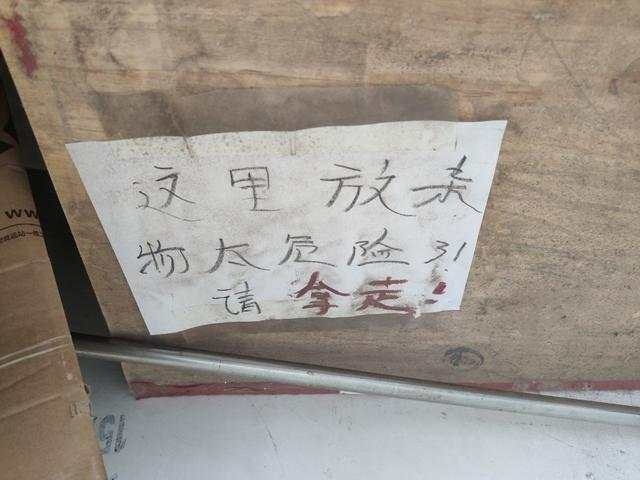 这里放杂
物太危险了!
请拿走!
ww